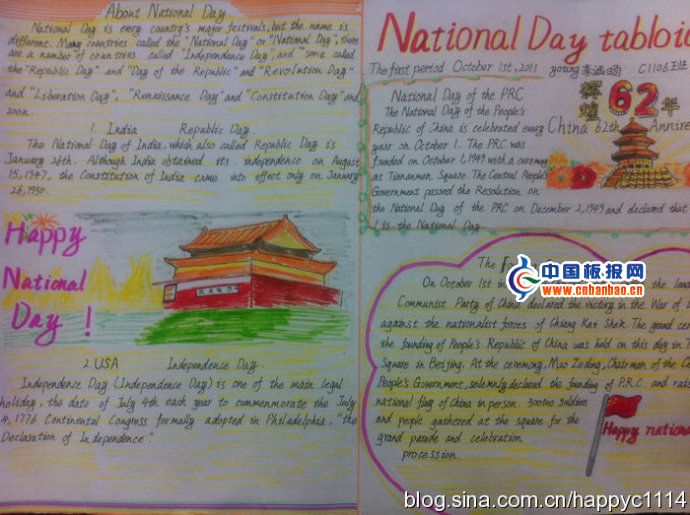 About National Day
National Day is every country's major festivals, but the name is
different. Many countries called the "National Day" or "National Day", there
are a number of countries called "Independence Day", and "some called
the "Republic Day" and "Day of the Republic" and "Revolution Day"
and "Liberation Day", "Renaissance Day" and "Constitution Day" and
soon.
1. India Republic Day
The National Day of India, which also called Republic Day is
January 26th. Although India obtained its independence on August
15, 1947, the Constitution of India came into effect only on January
26, 1950.
Happy
National
Day !
2. USA Independence Day
Independence Day (Independence Day) is one of the main legal
holiday, the date of July 4th each year to commemorate the July
4, 1776 Continental Congress formally adopted in Philadelphia, "the
Declaration of Independence".
National Day tabloid
The first period October 1st, 2011 young C1106班
辉煌62年
China 62th Annivers
National Day of the PRC
The National Day of the People's
Republic of China is celebrated every
year on October 1. The PRC was
founded on October 1, 1949 with a ceremony
at Tiananmen Square. The Central People's
Government passed the Resolution on
the National Day of the PRC on December 2, 1949 and declared that
1 is the National Day
The
On October 1st in the
Communist Party of China declared the victory in the War of
against the nationalist forces of Chiang Kai Shek. The grand
the founding of People's Republic of China was held on this day in
Square in Beijing. At the ceremony, Mao Zedong, Chairman of the
People's Government, solemnly declared the founding of P.R.C. and
national flag of China in person. 300000 soldies
and peple gathered at the square for the
grand parade and celebration
procession.
Happy nationa
中国板报网
www.cnbanbao.cn
blog.sina.com.cn/happyc1114